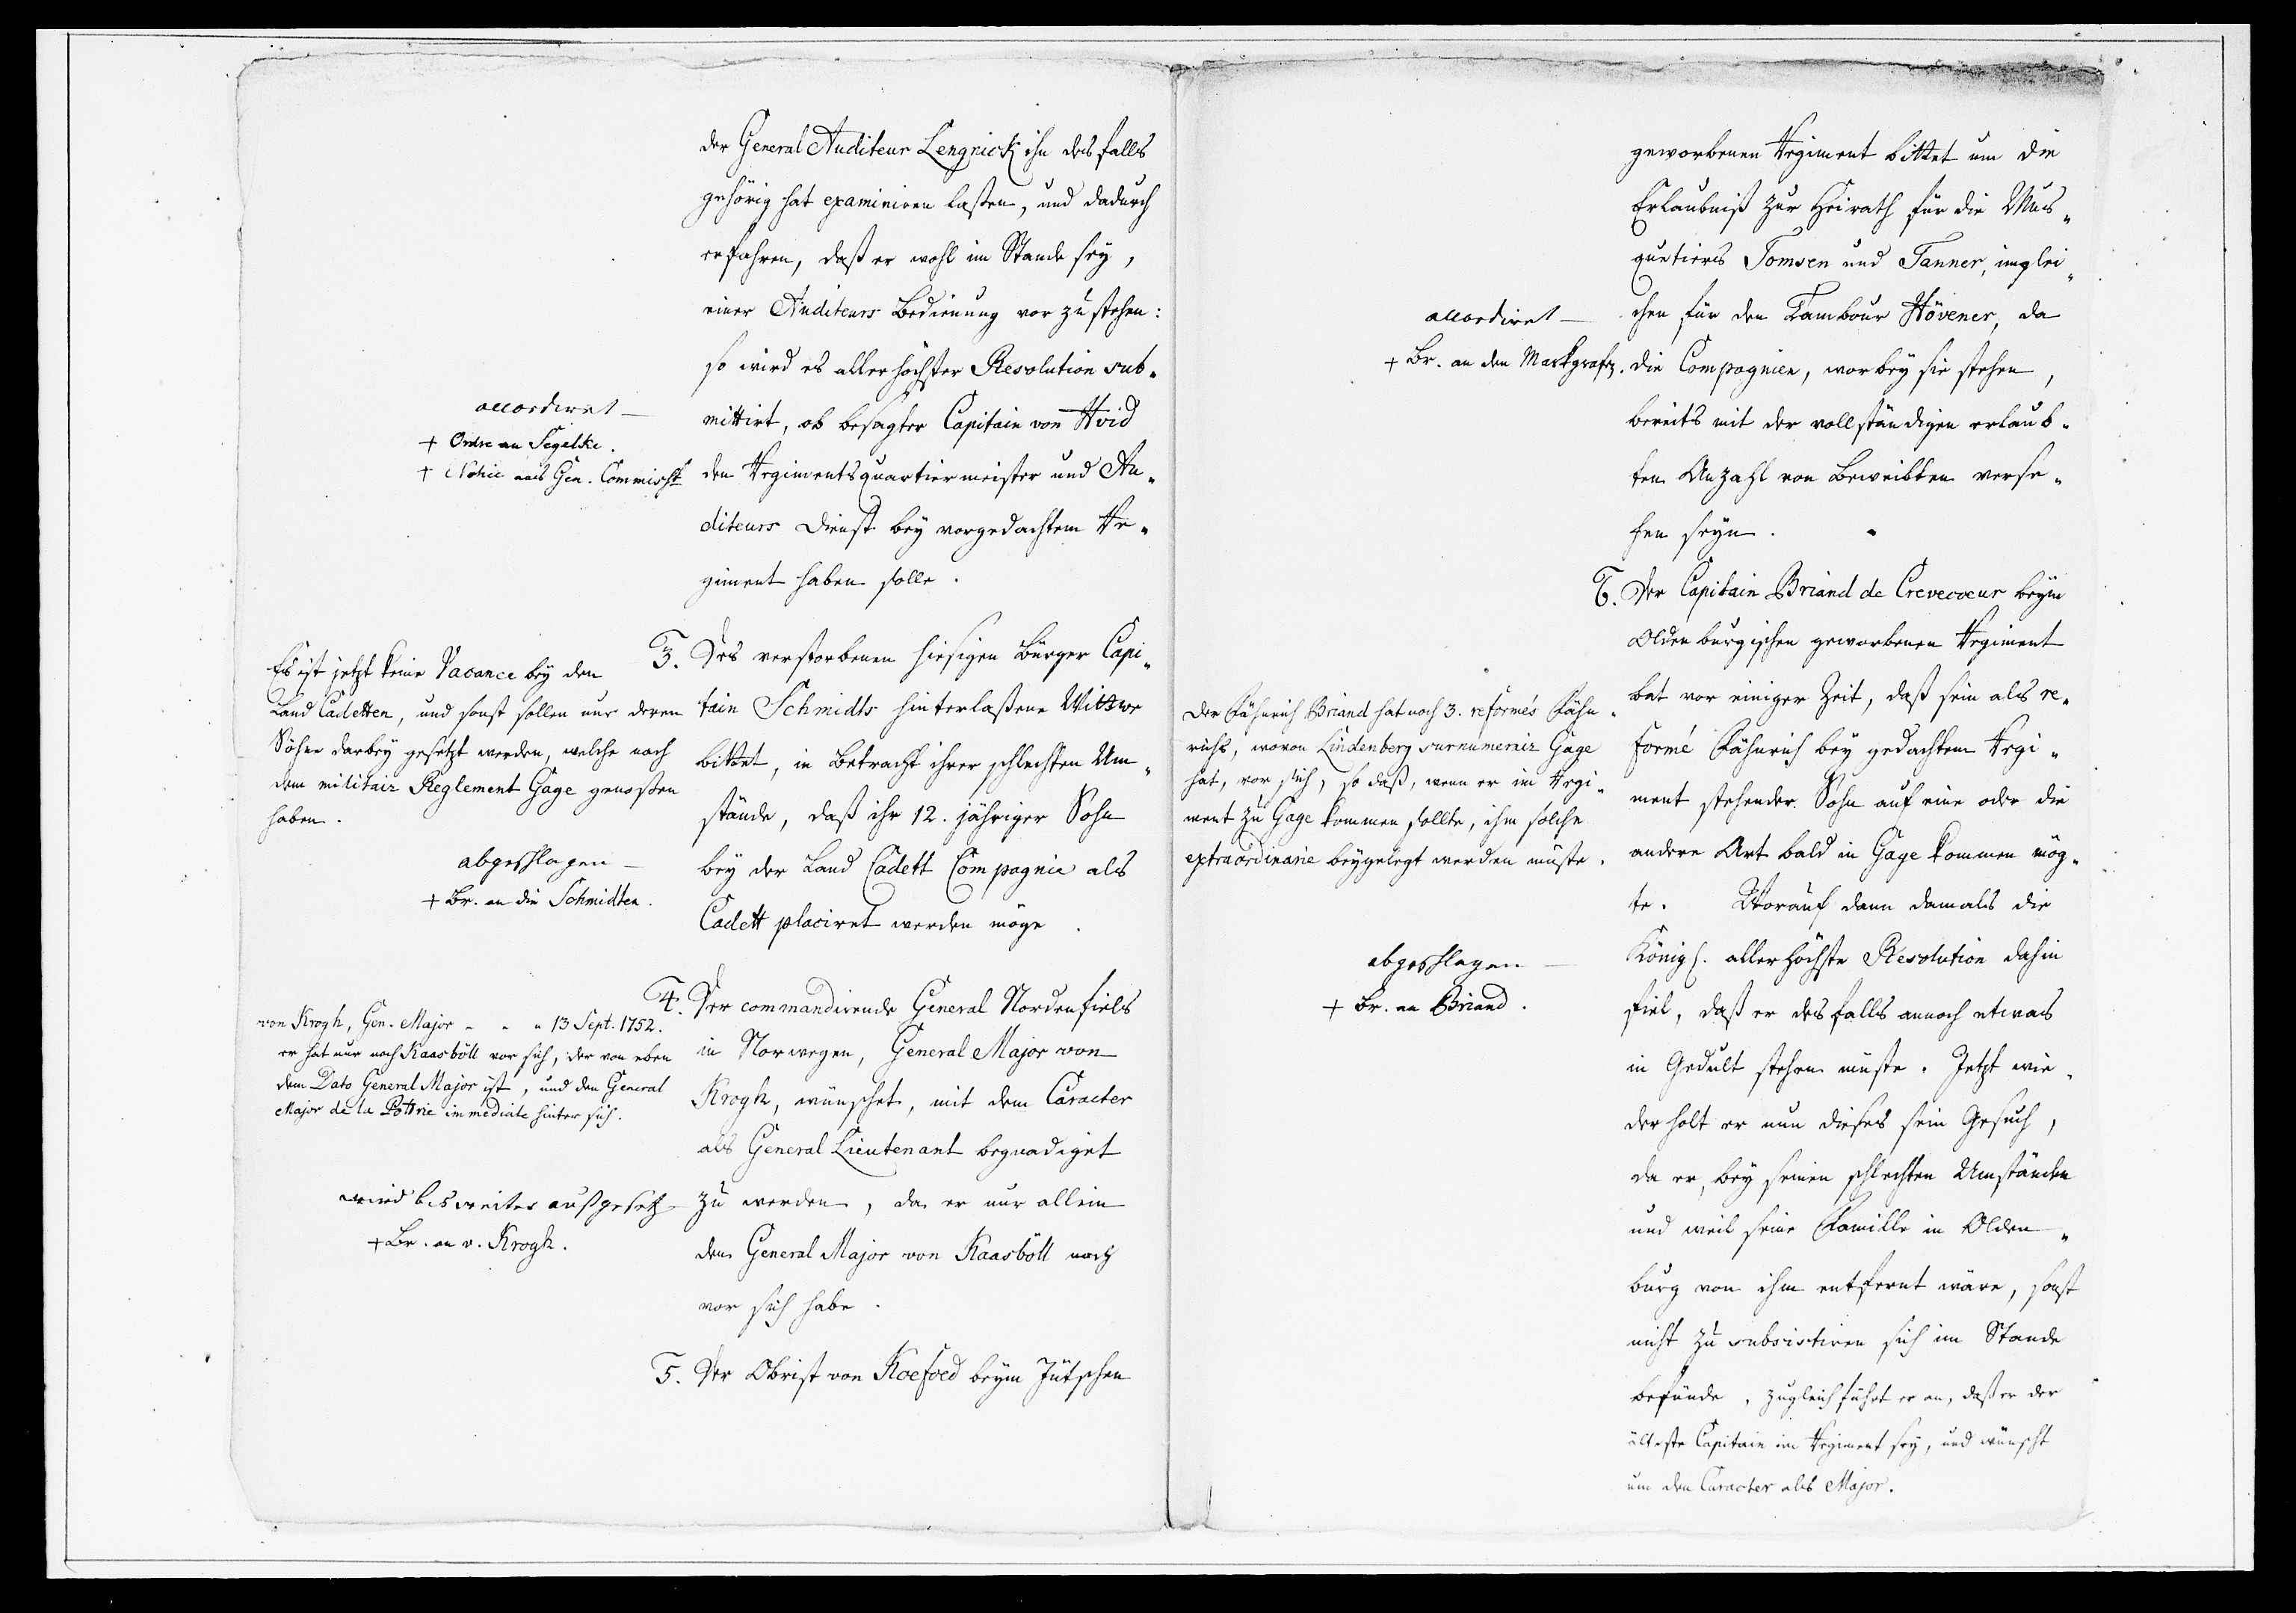 der General Auditeur Lengnick ihn desfalls
gehörig hat examiniren laßen, und dadurch
erfahren, daß er wohl im Stande sey,
einer Auditeurs Bedienung vor zu stehen:
so wird es allerhöchster Resolution sub-
mittirt, ob besagter Capitain von Hvid
den Regimentsquartiermeister und Au-
diteurs Dienst bey vorgedachtem Re-
giment haben solle.
accordiret
+ Ordre an Segelke.
+ Notice ans Gen. Commisst.
3. Des verstorbenen hiesigen Bürger Capi-
tain Schmidts hinterlaßene Wittwe
bittet, in Betracht ihrer schlechten Um-
stände, daß ihr 12. jähriger Sohn
bey der Land Cadett Compagnie als
Cadett placiret werden möge.
Es ist jetzt keine Vacance bey den
Land Cadetten, und sonst sollen nur deren
Söhne darbey gesetzt werden, welche nach
dem militair Reglement Gage genoßen
haben.
abgeschlagen
+ Br. an die Schmidten.
4. Der commandirende General Nordenfiels
in Norwegen, General Major von
Krogh, wünschet, mit dem Caracter
als General Lieutenant begnadiget
zu werden, da er nur allein
den General Major von Kaasböll noch
vor sich habe.
von Krogh, Gen. Major - - - 13 Sept. 1752.
er hat nur noch Kaasböll vor sich, der von eben
dem Dato General Major ist, und den General
Major de la Pottrie immediate hinter sich.
wird bis weiter außgesetz
+ Br. an v. Krogh.
5. Der Obrist von Koefoed beym Jütschen
geworbenen Regiment bittet um die
Erlaubniß zur Heirath für die Mus-
quetiers Tomsen und Tanner, imglei-
chen für den Tambour Hövener, da
die Compagnien, worbey sie stehen,
bereits mit der vollständigen erlaub-
ten Anzahl von Beweibten verse-
hen seyn.
accordiret
+ Br. an den Markgrafen.
6. Der Capitain Briand de Crevecoeur beym
Oldenburgischen geworbenen Regiment
bat vor einiger Zeit, daß sein als re-
formé Fähnrich bey gedachtem Regi-
ment stehender Sohn auf eine oder die
andere Art bald in Gage kommen mög-
te. Worauf dann damals die
Königl. allerhöchste Resolution dahin
fiel, daß er desfalls annoch etwas
in Gedult stehen müste. Jetzt wie-
derholt er nun dieses sein Gesuch,
da er, bey seinen schlechten Umständen
und weil seine Famille in Olden-
burg von ihm entfernt wäre, sonst
nicht zu subsistiren sich im Stande
befünde. Zugleich führt er an, daß er der
älteste Capitain im Regiment sey, und wünscht
um den Caracter als Major.
Der Fähnrich Briand hat noch 3. reformés Fähn-
richs, wovon Lindenberg surnumerair Gage
hat, vor sich, so daß, wenn er im Regi-
ment zu Gage kommen sollte, ihm solche
extraordinarie beygelegt werden müste.
abgeschlagen
+ Br. an Briand.